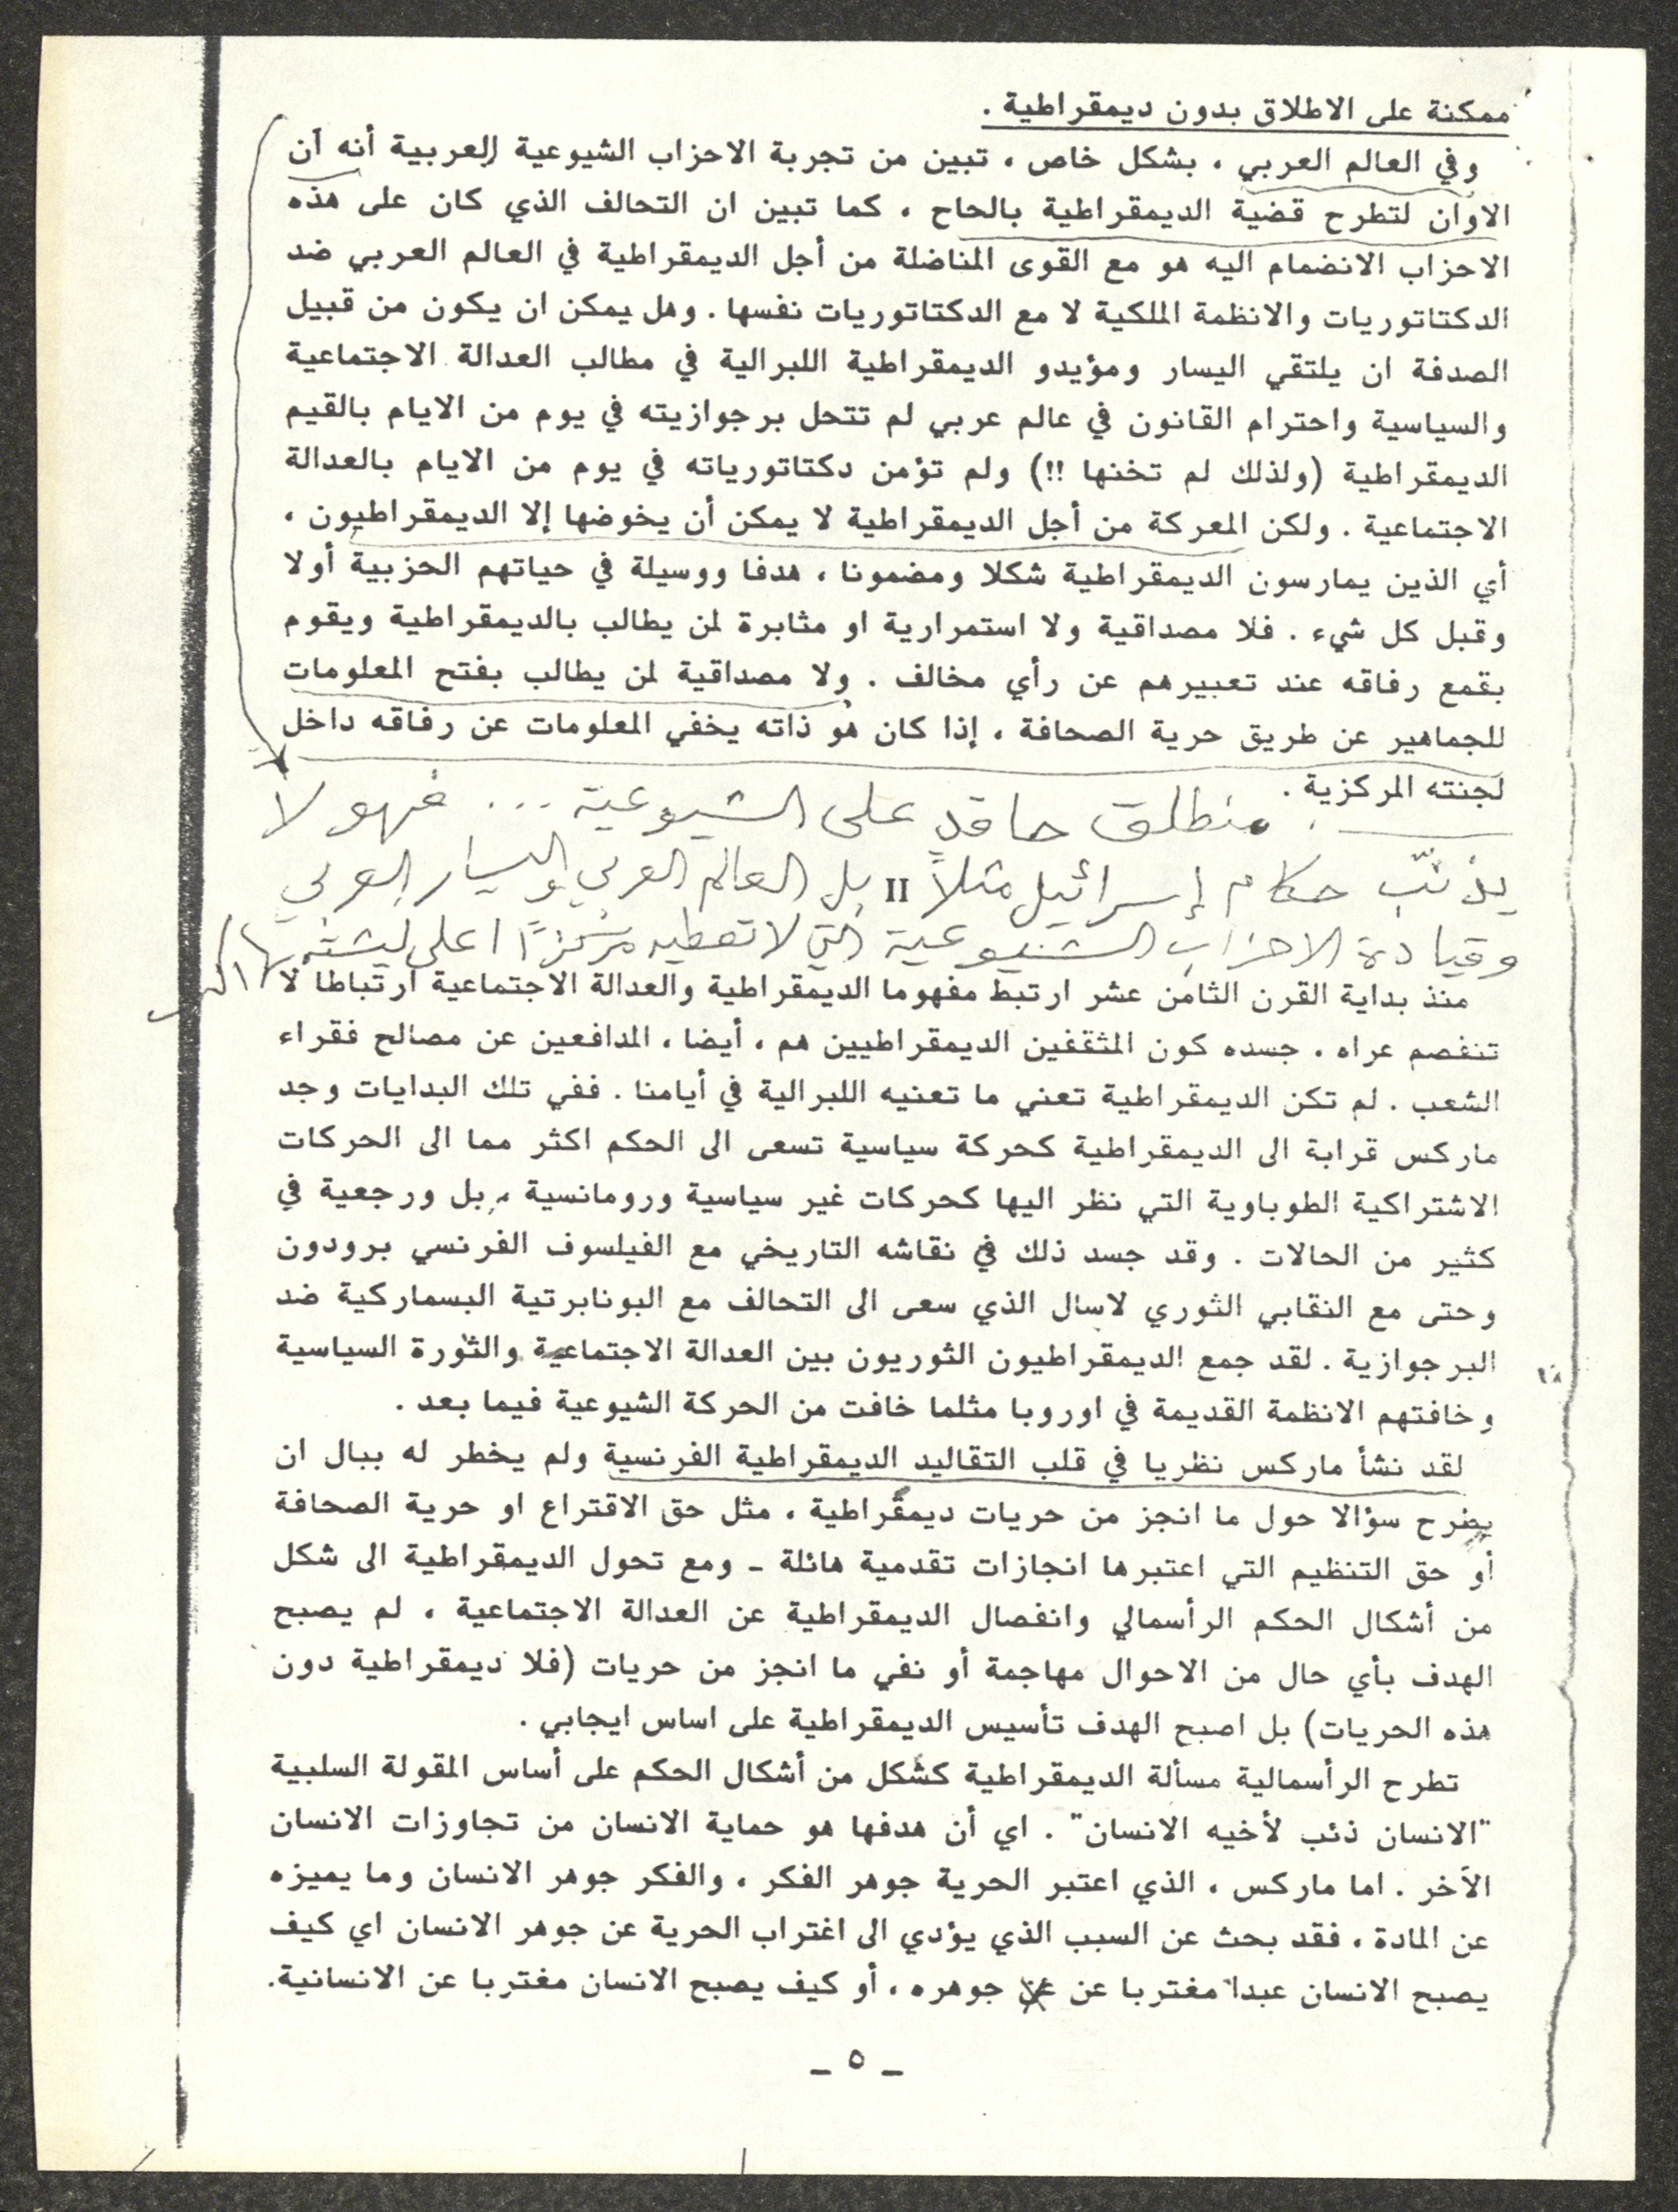 ممكنة على الاطلاق بدون ديمقراطية .
وفي العالم العربي ، بشكل خاص ، تبين من تجربة الاحزاب الشيوعية العربية أنه آن
الاوان لتطرح قضية الديمقراطية بالحاح ، كما تبين ان التحالف الذي كان على هذه
الاحزاب الانضمام اليه هو مع القوى المناضلة من أجل الديمقراطية في العالم العربي ضد
الدكتاتوريات والانظمة الملكية لا مع الدكتاتوريات نفسها . وهل يمكن ان يكون من قبيل
الصدفة ان يلتقي اليسار ومؤيدو الديمقراطية اللبرالية في مطالب العدالة الاجتماعية
والسياسية واحترام القانون في عالم عربي لم تتحل برجوازيته في يوم من الايام بالقيم
الديمقراطية (ولذلك لم تخنها !!) ولم تؤمن دكتاتورياته في يوم من الايام بالعدالة
الاجتماعية . ولكن المعركة من أجل الديمقراطية لا يمكن أن يخوضها إلا الديمقراطيون ،
أي الذين يمارسون الديمقراطية شكلا ومضمونا ، هدفا ووسيلة في حياتهم الحزبية أولا
وقبل كل شيء . فلا مصداقية ولا استمرارية او مثابرة لمن يطالب بالديمقراطية ويقوم
بقمع رفاقه عند تعبيرهم عن رأي مخالف . ولا مصداقية لمن يطالب بفتح المعلومات
للجماهير عن طريق حرية الصحافة ، إذا كان هو ذاته يخفي المعلومات عن رفاقه داخل
لجنته المركزية .
منطلق حاقد على الشيوعية ... فهو لا
يذنّب حكام إسرائيل مثلاً بل العالم العربي واليسار العربي
II
وقيادة الاحزاب الشيوعية التي لا تعطيه مركزًا اعلى ليشتهر
منذ بداية القرن الثامن عشر ارتبط مفهوما الديمقراطية والعدالة الاجتماعية ارتباطا لا
تنفصم عراه ، جسده كون المثقفين الديمقراطيين هم ، أيضا ، المدافعين عن مصالح فقراء
الشعب . لم تكن الديمقراطية تعني ما تعنيه اللبرالية في أيامنا . ففي تلك البدايات وجد
ماركس قرابة الى الديمقراطية كحركة سياسية تسعى الى الحكم اكثر مما الى الحركات
الاشتراكية الطوباوية التي نظر اليها كحركات غير سياسية ورومانسية ، بل ورجعية في
كثير من الحالات . وقد جسد ذلك في نقاشه التاريخي مع الفيلسوف الفرنسي برودون
وحتى مع النقابي الثوري لاسال الذي سعى الى التحالف مع البونابرتية البسماركية ضد
البرجوازية . لقد جمع الديمقراطيون الثوريون بين العدالة الاجتماعية والثورة السياسية
وخافتهم الانظمة القديمة في اوروبا مثلما خافت من الحركة الشيوعية فيما بعد .
لقد نشأ ماركس نظريا في قلب التقاليد الديمقراطية الفرنسية ولم يخطر له ببال ان
يطرح سؤالا حول ما انجز من حريات ديمقراطية ، مثل حق الاقتراع او حرية الصحافة
أو حق التنظيم التي اعتبرها انجازات تقدمية هائلة ـ ومع تحول الديمقراطية الى شكل
من أشكال الحكم الرأسمالي وانفصال الديمقراطية عن العدالة الاجتماعية ، لم يصبح
الهدف بأي حال من الاحوال مهاجمة أو نفي ما انجز من حريات (فلا ديمقراطية دون
هذه الحريات) بل اصبح الهدف تأسيس الديمقراطية على اساس ايجابي .
تطرح الرأسمالية مسألة الديمقراطية كشكل من أشكال الحكم على أساس المقولة السلبية
"الانسان ذئب لأخيه الانسان" . اي أن هدفها هو حماية الانسان من تجاوزات الانسان
الآخر . اما ماركس ، الذي اعتبر الحرية جوهر الفكر ، والفكر جوهر الانسان وما يميزه
عن المادة ، فقد بحث عن السبب الذي يؤدي الى اغتراب الحرية عن جوهر الانسان اي كيف
يصبح الانسان عبدا مغتربا عن عن جوهره ، أو كيف يصبح الانسان مغتربا عن الانسانية.
ـ ٥ ـ